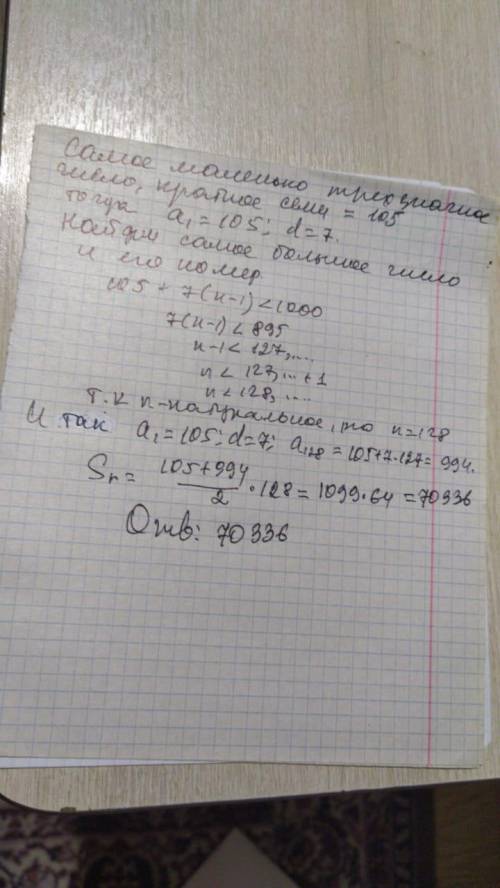 Самое маленько трехзначное
число, кратное семи = 105
тогда a₁ = 105; d = 7.
Найдем самое большое число
и его номер
105 + 7(n-1) < 1000
7(n-1) < 895
n-1 < 127,....
n < 127,... + 1
n < 128, ....
Т.к n-натуральное, то n=128
И так a₁ = 105; d=7; a₁₂₈ = 105+7·127= 994.
Sₙ = (105+994)/2 · 128 = 1099·64 = 70336
Отв: 70336